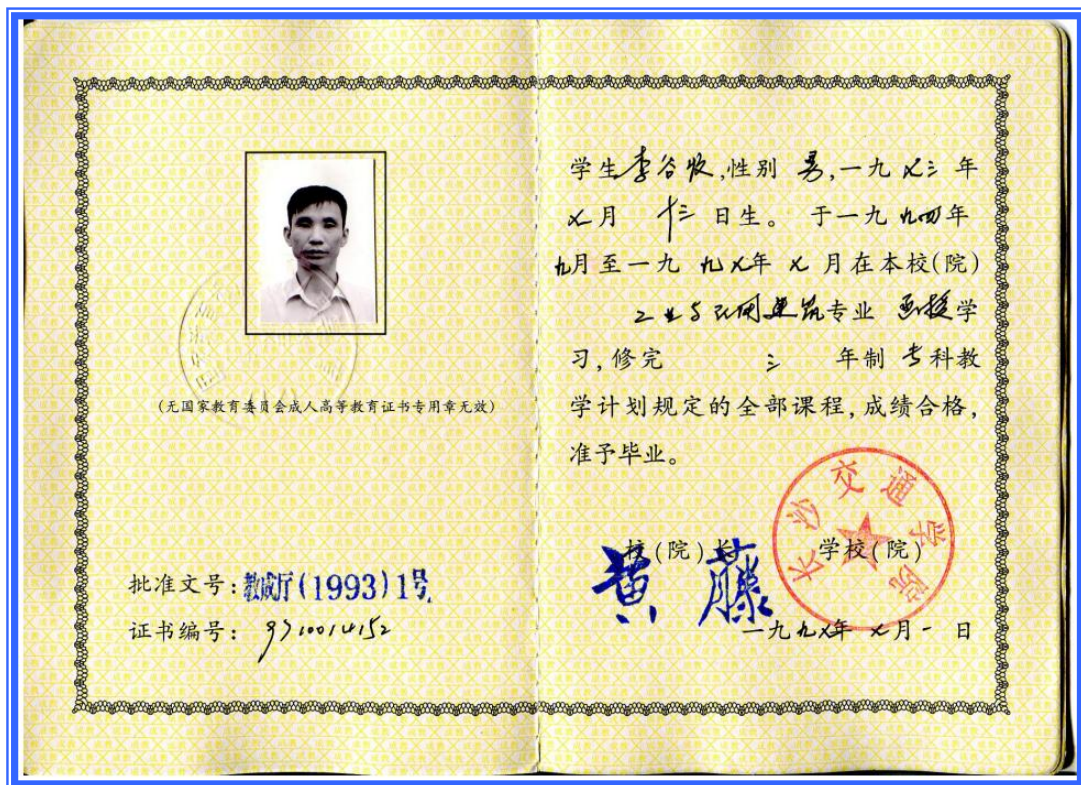 (无国家教育委员会成人高等教育证书专用章无效)
批准文号:教成厅(1993)1号
证书编号: 9710014152
学生李谷牧,性别 男,一九七三年
七月 十三 日生。 于一九九四年
九月至一九九七年 七 月在本校(院)
工业与民用建筑专业 函授学
习,修完 三 年制 专科教
学计划规定的全部课程,成绩合格,
准予毕业。
校(院)长 学校(院)
黄藤
长沙交通学院
一九九七年 七月一 日